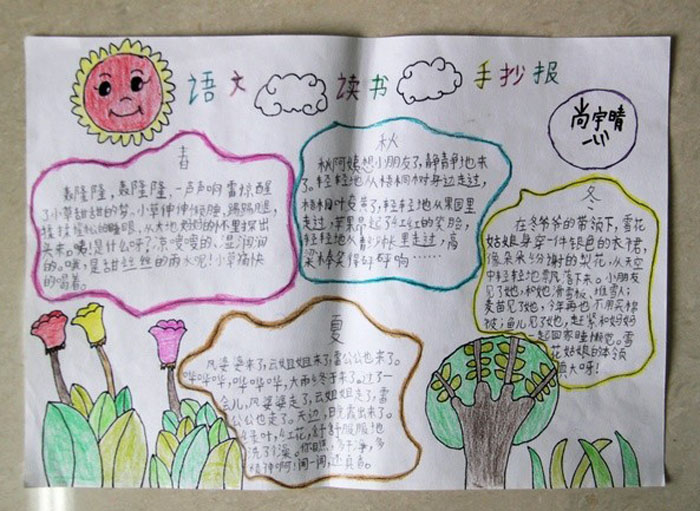 语文 读书 手抄报
尚宇晴
春
轰隆隆,轰隆隆,一声声响雷惊醒
了小草甜甜的梦。小草伸伸懒腰,踢踢腿,
揉揉惺忪的睡眼,从大地妈妈的怀里探出
头来。咦!是什么呀?凉嗖嗖的、湿润润
的。哦,是甜丝丝的雨水呢!小草痛快
的喝着。
秋
秋阿姨想小朋友了,静静地来
了。轻轻地从梧桐树身边走过,
梧桐叶变黄了,轻轻地从果园里
走过,苹果吊起了红红的笑脸,
轻轻地从高粱林里走过,高
粱棒笑得哗哗响……
冬
在冬爷爷的带领下,雪花
姑娘身穿一件银色的衣裙,
像朵朵分谢的梨花,从天空
中轻轻地飘落下来。小朋友
见了她,和她滑雪板、堆雪人;
麦苗见了她,今年再也不用买棉
被;鱼儿见了她,赶紧和妈妈
一起回家睡懒觉。雪
花姑娘的本领
真大呀!
夏
风婆婆来了,云姐姐来了,雷公公也来了。
哗哗哗,哗哗哗,大雨终于来了。过了一
会儿,风婆婆走了,云姐姐走了,雷
公公也走了。天边,日晓露出来了。
绿叶,红花,舒舒服服地
洗了澡。你瞧,多干净,多
精神啊!闻一闻,还真香。